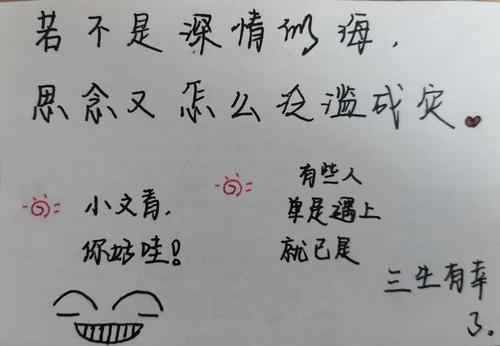 若不是深情似海,
思念又怎么泛滥成灾。
小文青,
你好哇!
有些人
单是遇上
就已是
三生有幸
了。